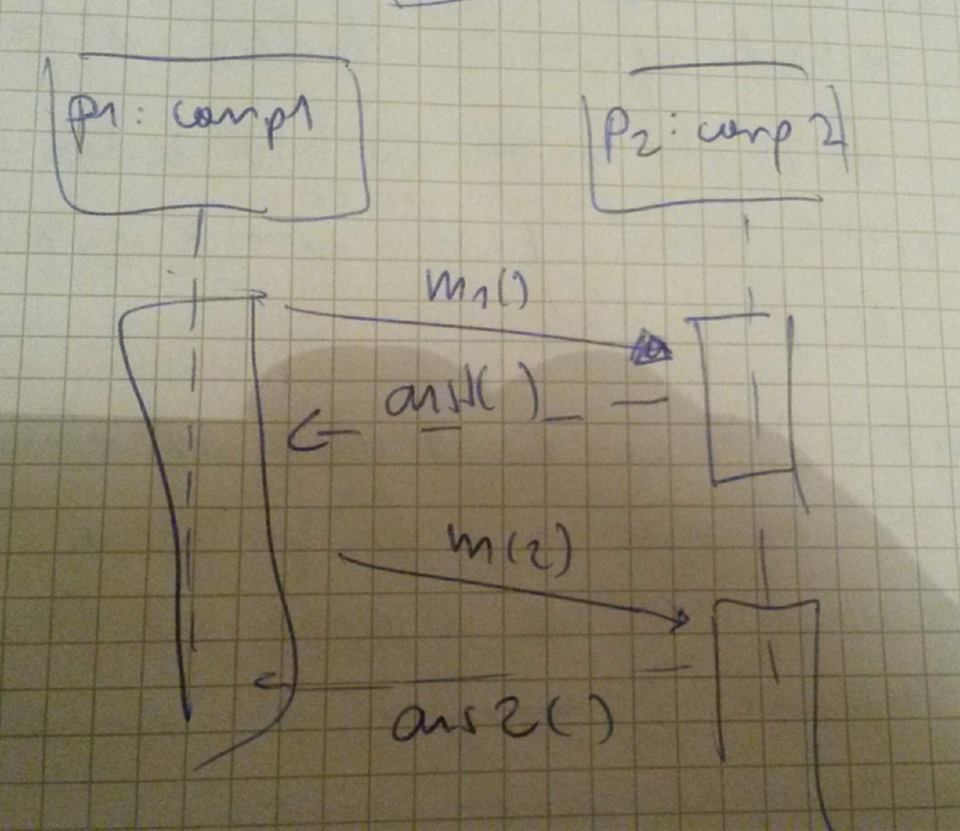 p1: comp1
P2: comp 2
m1()
ans1( )
m(2)
ans2()